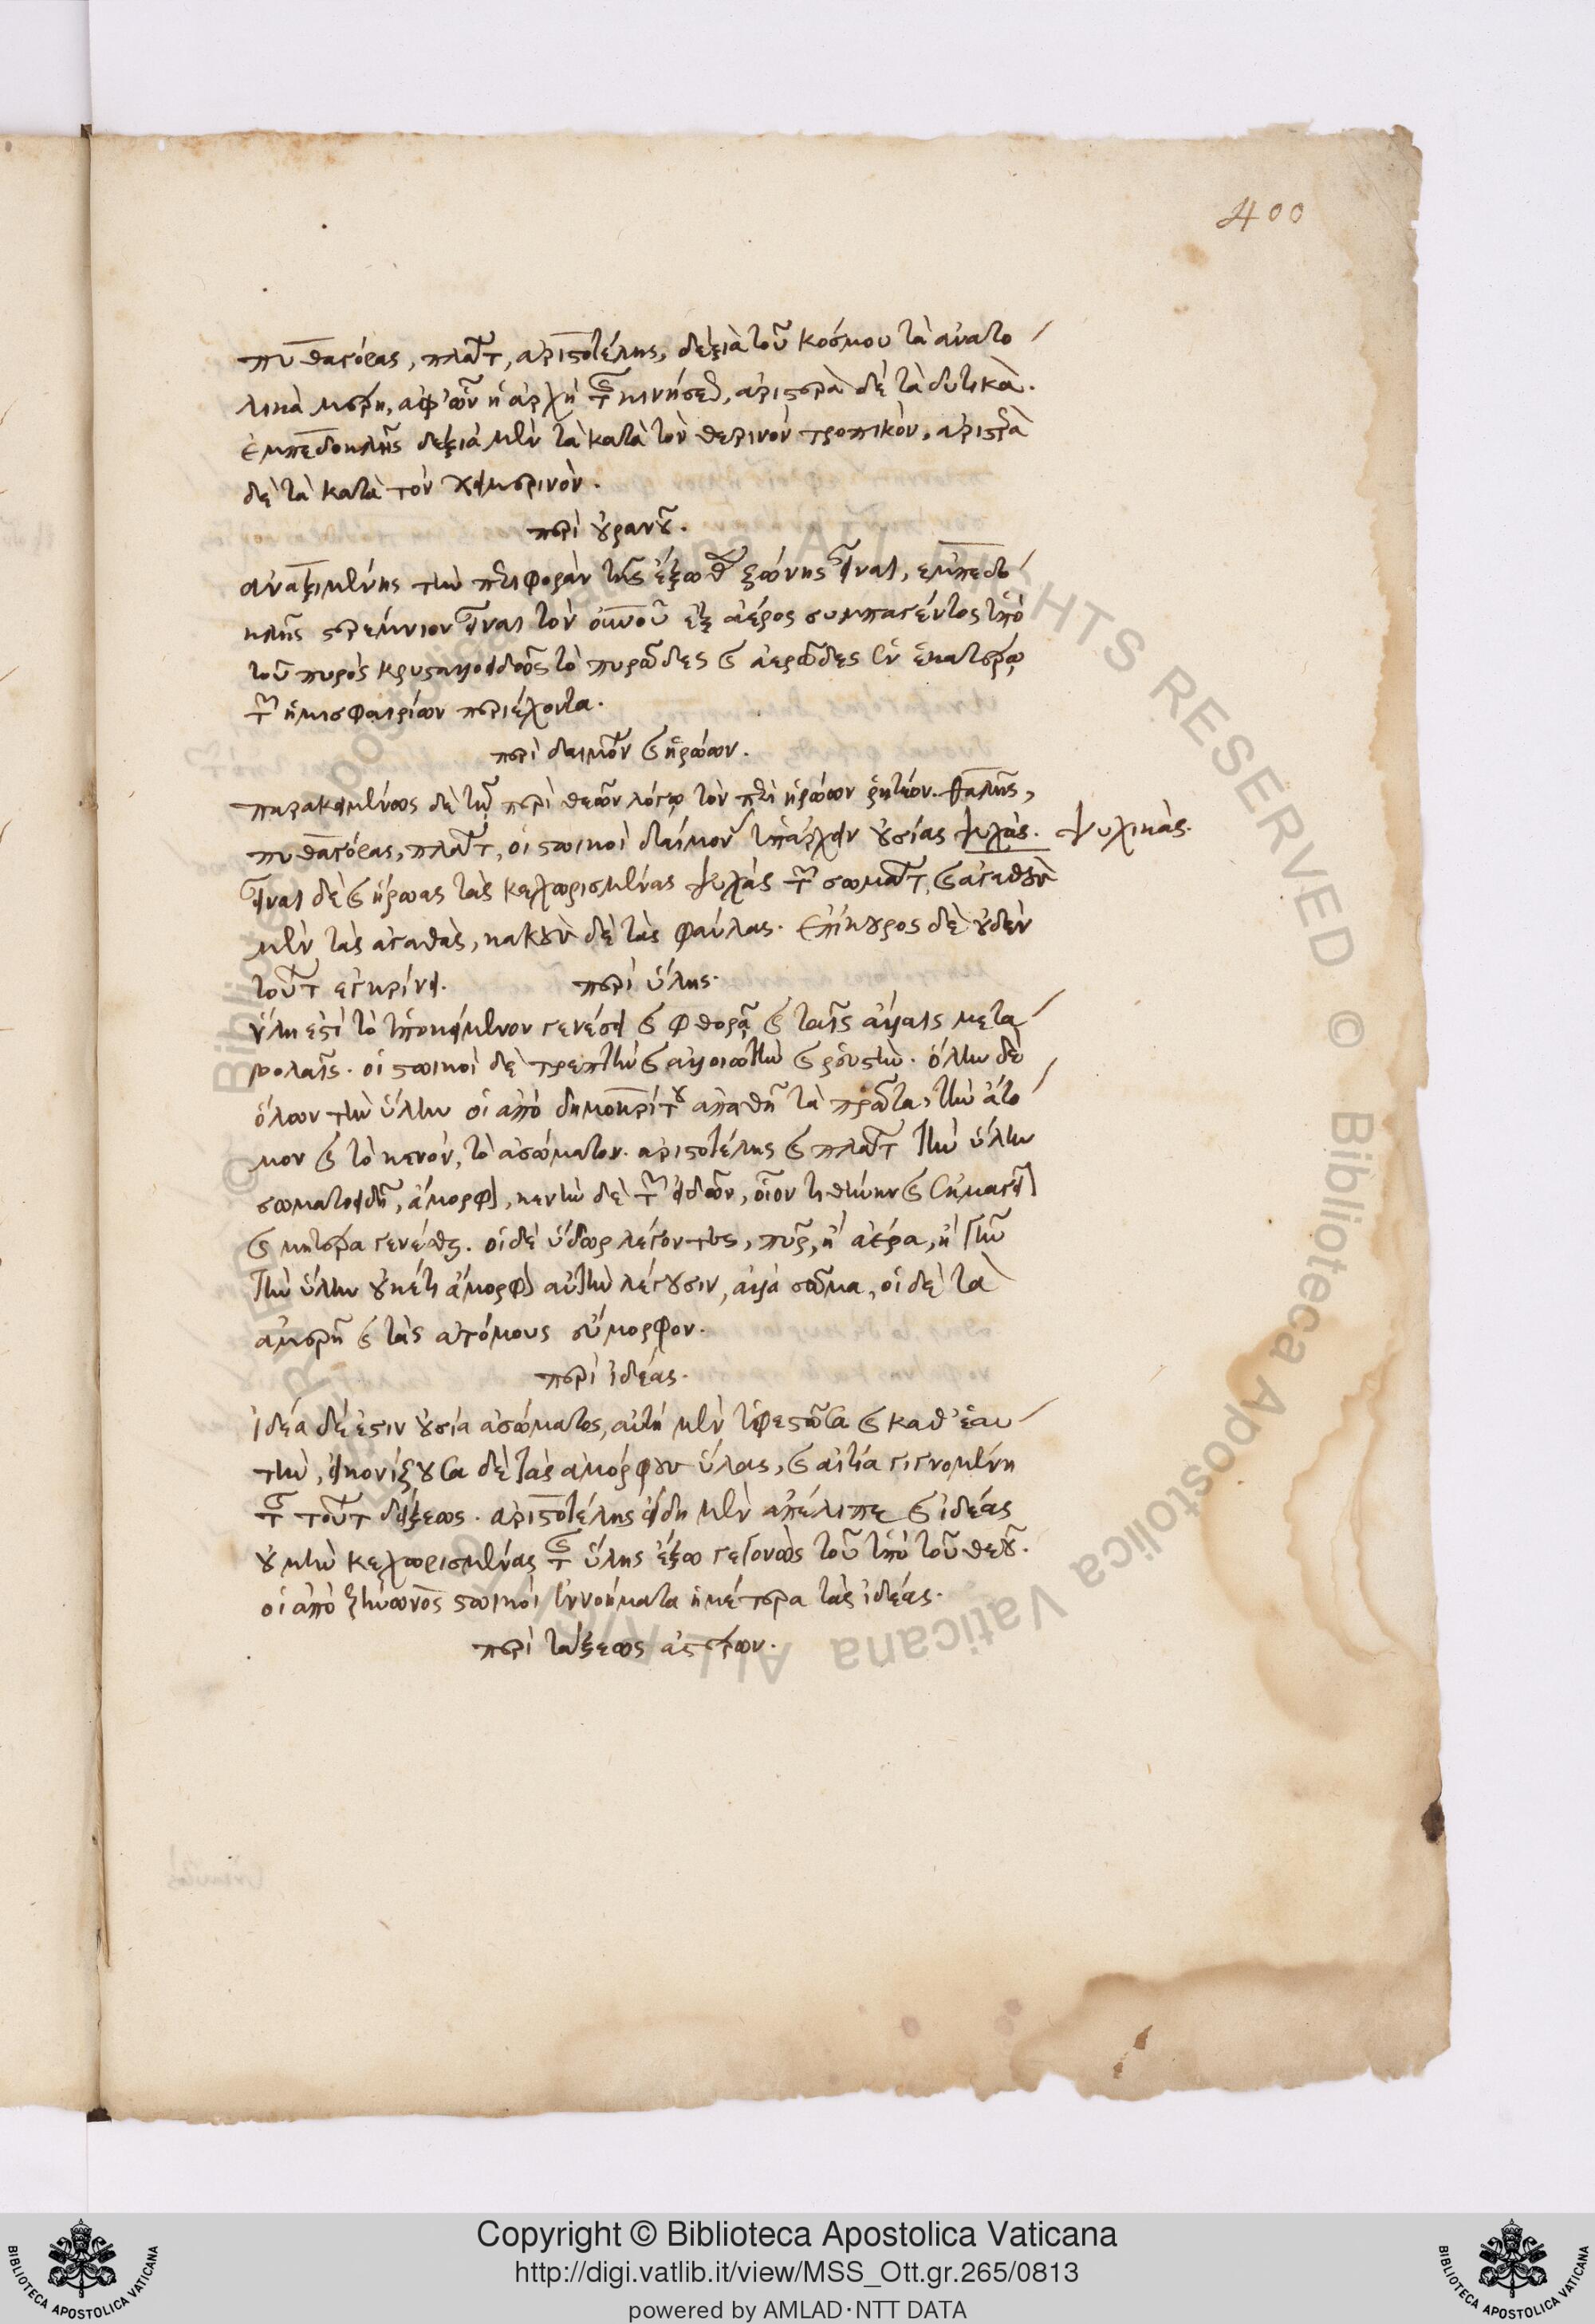 400
πυθαγόρας, πλάτ, ἀριστοτέλης, δεξιὰ τοῦ κόσμου τὰ ἀνατο
λικὰ μέρη, ἀφ' ὧν ἡ ἀρχὴ τ κινήσε, ἀριστερὰ δὲ τὰ δυτικά.
ἐμπεδοκλῆς δεξιὰ μὲν τὰ κατὰ τὸν θερινὸν τροπικὸν, ἀριστερὰ
δὲ τὰ κατὰ τὸν χειμερινόν.
περὶ οὐρανοῦ.
ἀναξιμένης τὴν περιφορὰν τῆς ἔξωθ ζώνης εἶναι, ἐμπεδο
κλῆς στερέμνιον εἶναι τὸν οὐνοῦ ἐξ ἀέρος συμπαγέντος ὑπὸ
τοῦ πυρὸς κρυσταλλοειδῶς τὸ πυρῶδες καὶ ἀερῶδες ἐν ἑκατέρῳ
τ ἡμισφαιρίων περιέχοντα.
περὶ δαιμόν καὶ ἡρώων.
παρακειμένως δὲ τῷ περὶ θεῶν λόγῳ τὸν περὶ ἡρώων ῥητέον. θαλῆς,
πυθαγόρας, πλάτ, οἱ στωικοὶ δαίμον ὑπάρχειν οὐσίας ψυχάς. ψυχικάς.
εἶναι δὲ καὶ ἥρωας τὰς κεχωρισμένας ψυχὰς τ σωμάτ, καὶ ἀγαθοὺς
μὲν τὰς ἀγαθὰς, κακοὺς δὲ τὰς φαύλας. ἐπίκουρος δὲ οὐδὲν
τούτ ἐγκρίνει. περὶ ὕλης.
ὕλη ἐστὶ τὸ ὑποκείμενον γενέσει καὶ φθορᾷ καὶ ταῖς ἄλλαις μετα
βολαῖς. οἱ στωικοὶ δὲ τρεπτὴν καὶ ἀλλοιωτὴν καὶ ῥευστὴν. ὅλην δὲ
ὅλων τὴν ὕλην οἱ ἀπὸ δημοκρίτου ἀπαθῆ τὰ πρῶτα, τὴν ἄτο
μον καὶ τὸ κενόν, τὸ ἀσώματον. ἀριστοτέλης καὶ πλάτ τὴν ὕλην
σωματοειδῆ, ἄμορφ, κενὴν δὲ τ εἰδῶν, οἷον τιθήνην καὶ ἐκμαγεῖ
καὶ μητέρα γενέσθαι. οἱ δὲ ὕδωρ λέγοντες, πῦρ, ἢ ἀέρα, ἢ γῆν
τὴν ὕλην οὐκέτι ἄμορφ αὐτὴν λέγουσιν, ἀλλὰ σῶμα, οἱ δὲ τὰ
ἀμερῆ καὶ τὰς ἀτόμους ἄμορφον.
περὶ ἰδέας.
ἰδέα δέ ἐστιν οὐσία ἀσώματος, αὐτὴ μὲν ὑφεστῶσα καὶ καθ' ἑαυ
τὴν, εἰκονίζουσα δὲ τὰς ἀμόρφους ὕλας, καὶ αἰτία γιγνομένη
τ τούτ δείξεως. ἀριστοτέλης εἴδη μὲν ἀπέλιπε καὶ ἰδέας
οὐ μὴν κεχωρισμένας τ ὕλης ἔξω γεγονὼς τοῦ ὑπὸ τοῦ θεοῦ.
οἱ ἀπὸ ζήνωνος στωικοὶ ἐννοήματα ἡμέτερα τὰς ἰδέας.
περὶ τάξεως ἀστέρων.
Copyright © Biblioteca Apostolica Vaticana
http://digi.vatlib.it/view/MSS_Ott.gr.265/0813
powered by AMLAD·NTT DATA